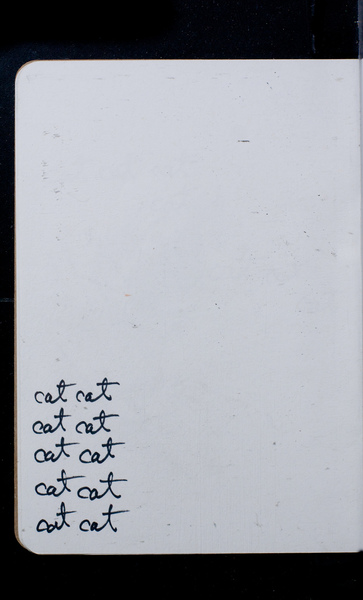 cat cat
cat cat
cat cat
cat cat
cat cat